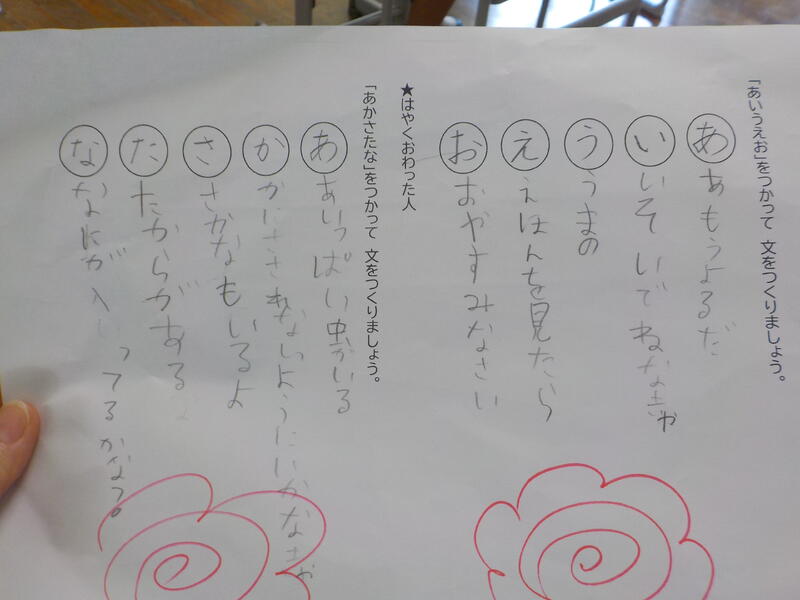 「あいうえお」をつかって 文をつくりましょう。
あ あもうよるだ
い いそいでねなきゃ
う うまの
え えほんを見たら
お おやすみなさい
★はやくおわった人
「あかさたな」をつかって 文をつくりましょう。
あ あいっぱい虫がいる
か かにさされないようにいかなきゃ
さ さかなもいるよ
た たからがある
な なにが入ってるかな?。